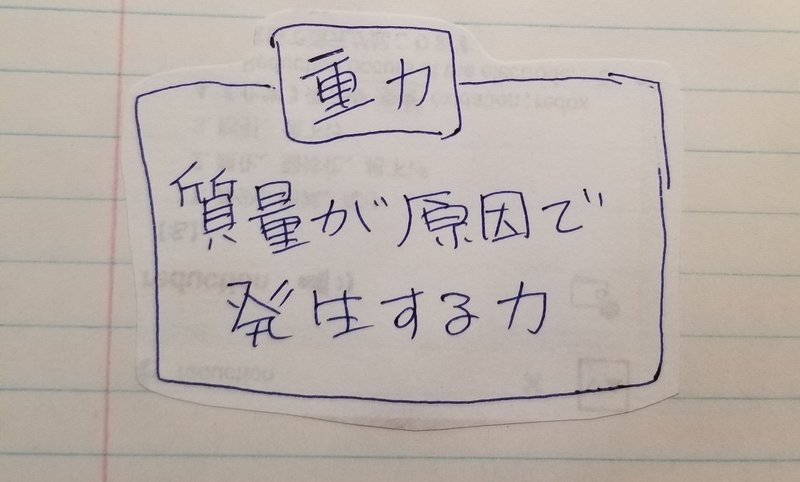 重力
質量が原因で
発生する力